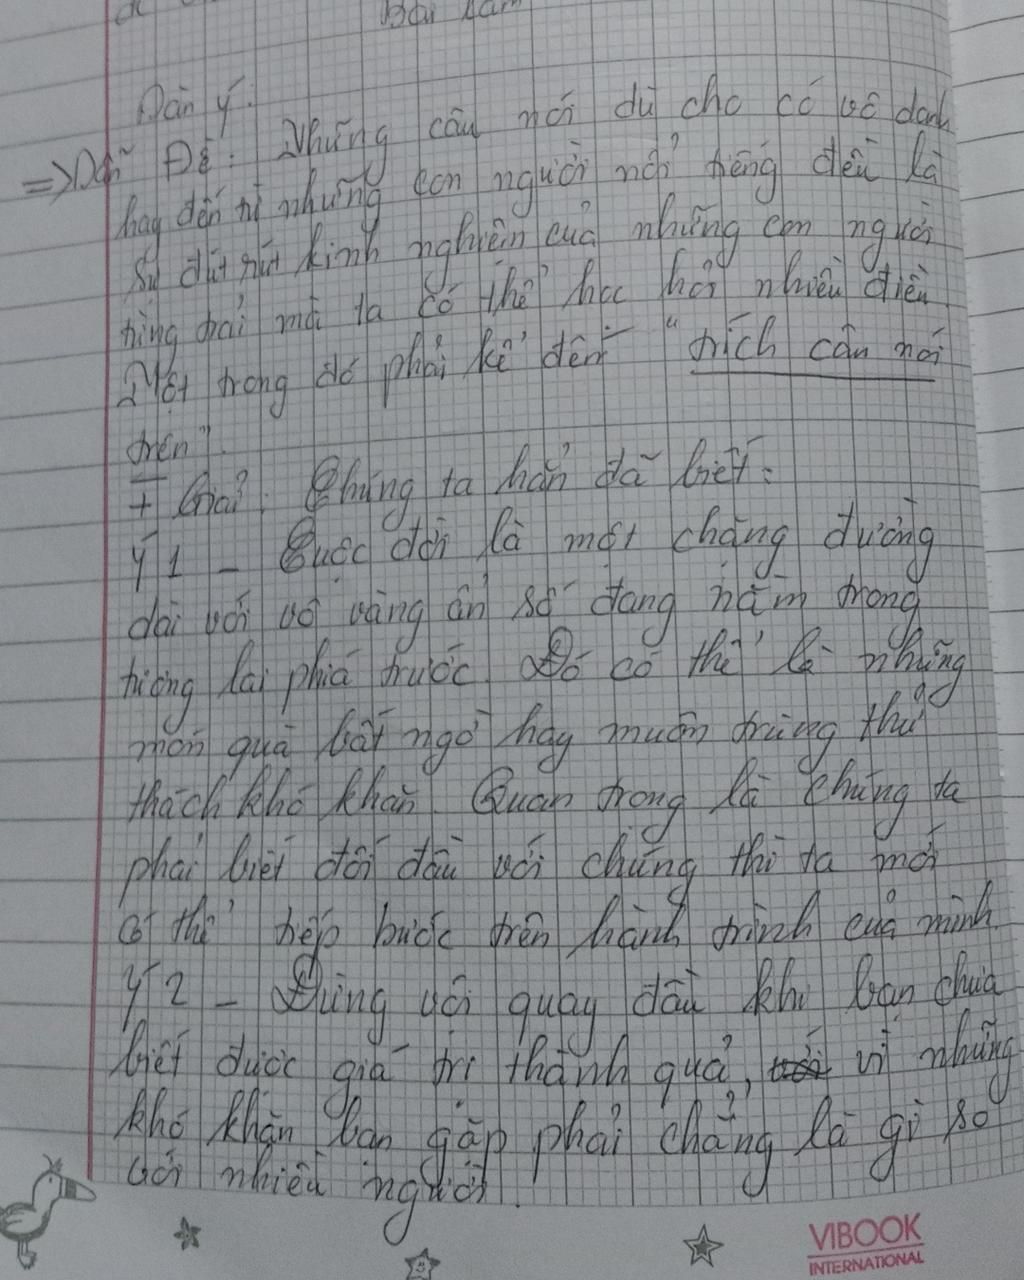 Bài làm
Dàn ý:
=> Dẫn Đề: Những câu nói dù cho có vô danh
hay đến từ những con người nổi tiếng đều là
sự đút rút kinh nghiên của những con người
từng trải mà ta có thể học hỏi nhiều điều.
Một trong đó phải kể đến "trích câu nói
trên".
+ Giải: Chúng ta hẳn đã biết:
Ý 1 - Cuộc đời là một chặng đường
dài với vô vàng ẩn số đang nằm trong
tương lai phía trước. Đó có thể là những
món quà bất ngờ hay muôn trùng thử
thách khó khăn. Quan trọng là chúng ta
phải biết đối đầu với chúng thì ta mới
có thể tiếp bước trên hành trình của mình.
Ý 2 - Đừng vội quay đầu khi bạn chưa
biết được giá trị thành quả, vì những
khó khăn bạn gặp phải chẳng là gì so
với nhiều người.
VIBOOK
INTERNATIONAL